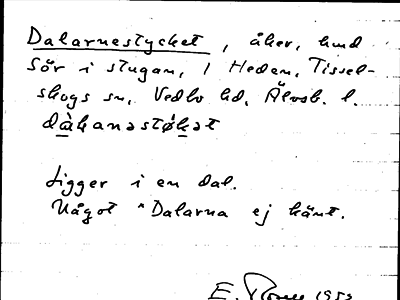 Dalarnestycket, åker, hmd
Sör i stugan, 1 Heden, Tissel-
skogs sn, Vedbo hd, Älvsb. l.
dàhanəstøkət
Ligger i en dal.
Något *Dalarna ej känt.
E.